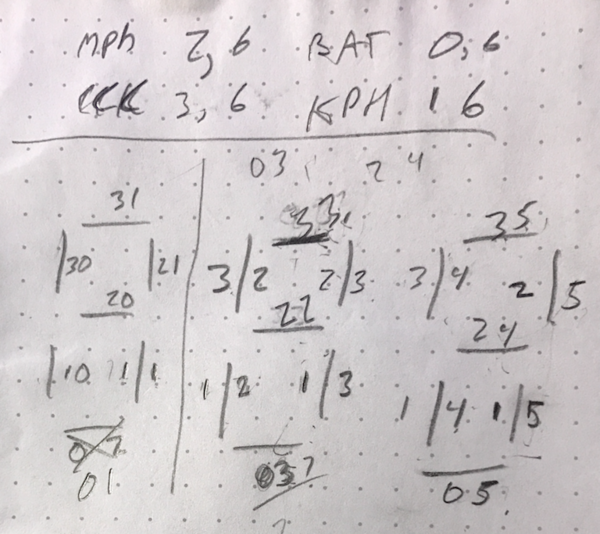 mph 2,6 BAT 0,6
KKK 3,6 KPH 1 6
03, 24
31 33, 35
30 21 3 2 2 3 3 4 2 5
20 22 24
10 1 1 1 2 1 3 1 4 1 5
01 05